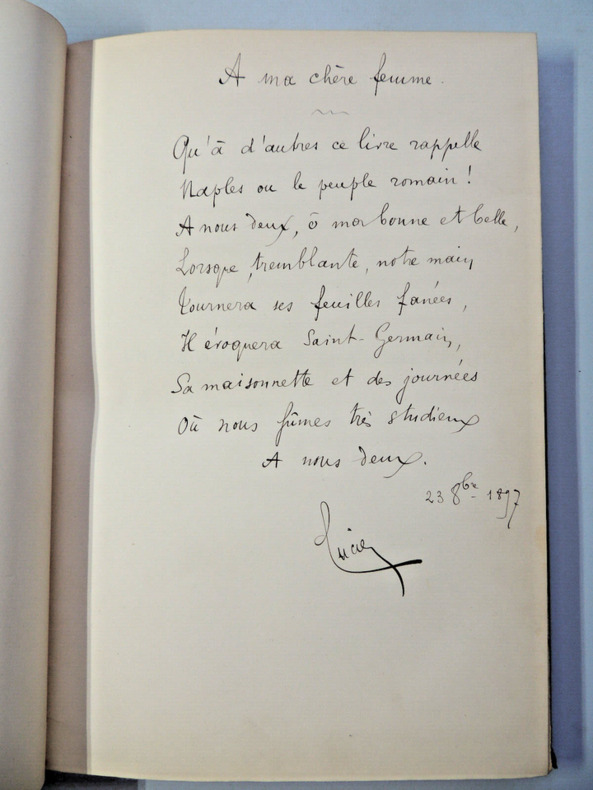 A ma chère femme.
Qu'à d'autres ce livre rappelle
Naples ou le peuple romain !
A nous deux, ô ma bonne et belle,
Lorsque, tremblante, notre main
Tournera ses feuilles fanées,
Il évoquera Saint-Germain,
Sa maisonnette et des journées
Où nous fûmes très studieux
A nous deux.
23 8bre 1897
Lucien